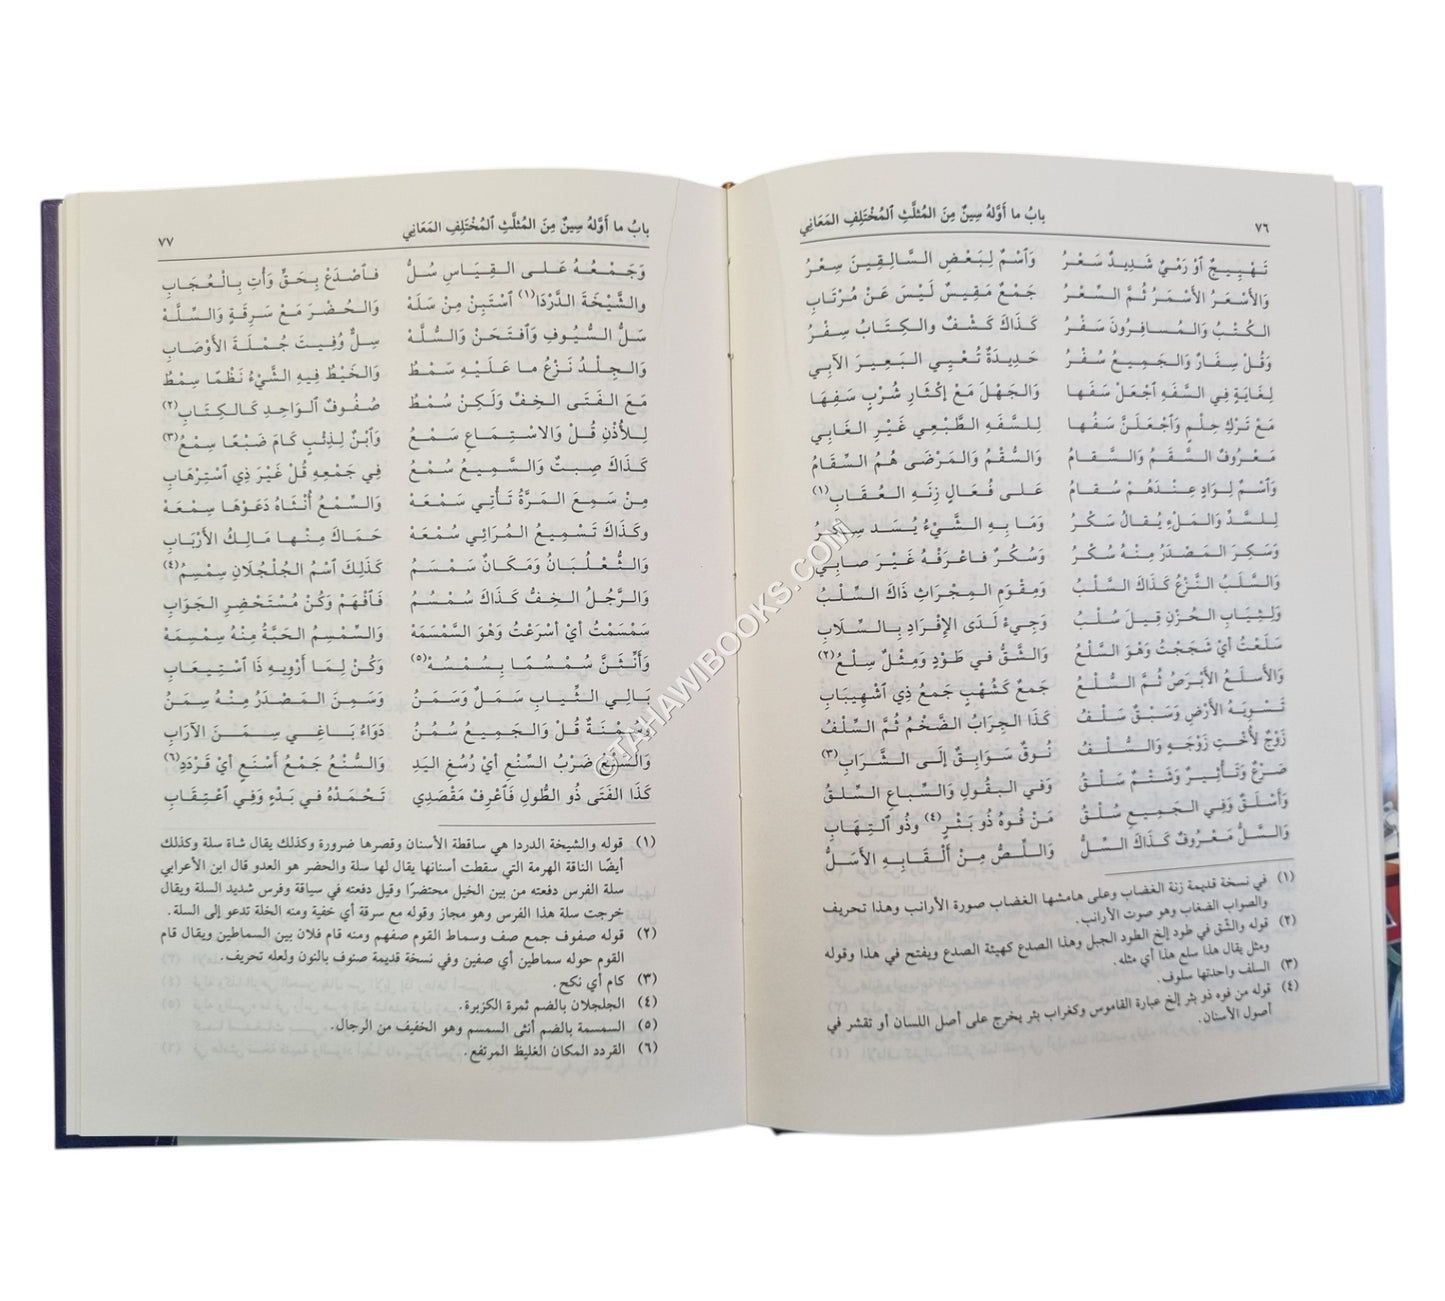 ٧٦ بابُ ما أَوَّلهُ سِينٌ مِنَ المُثلَّثِ ٱلمُخْتَلِفِ المَعَانِي
تَهْيِيجٌ اوْ رَمْيٌ شَدِيدٌ سَعْرُ وَٱسْمٌ لِبَعْضِ السَّالِقِينَ سِعْرُ
وَالأَسْعَرُ الأَسْمَرُ ثُمَّ السُّعْرُ جَمْعٌ مَقِيسٌ لَيْسَ عَنْ مُرْتَابِ
الكُتْبُ وَالمُسافِرُونَ سَفْرُ كَذَاكَ كَشْفٌ والكِتَابُ سِفْرُ
وَقُلْ سِفَارٌ وَالجَمِيعُ سُفْرُ حَدِيدَةٌ تُعْيِي البَعِيرَ الآبِي
لِغايَةٍ فِي السَّفَهِ ٱجْعَلْ سَفَها وَالجَهْلَ مَعْ إِكْثَارِ شُرْبٍ سَفِهَا
مَعْ تَرْكِ حِلْمٍ وَٱجْعَلَنَّ سَفُها لِلسَّفَهِ الطَّبْعِي غَيْرِ الغَابِي
مَعْرُوفٌ السَّقَمُ وَالسَّقامُ وَالسُّقْمُ وَالمَرْضَى هُمُ السِّقَامُ
وَٱسْمٌ لِوَادٍ عِنْدَهُمْ سُقامُ عَلى فُعَالٍ زِنَهِ العُقَابِ(١)
لِلسَّدِّ وَالمَلْءِ يُقالُ سَكْرُ وَمَا بِهِ الشَّيْءُ يُسَد سِكْرُ
وَسَكِرَ المَصْدَرُ مِنْهُ سُكْرُ وَسُكُرٌ فاعْرَفْهُ غَيْرَ صابِي
وَالسَّلَبُ النَّزْعُ كَذَاكَ السَّلْبُ وَمِقْوَمِ المِجْرَاثِ ذَاكَ السِّلْبُ
وَلِثِيَابِ الحُزْنِ قِيلَ سُلْبُ وَجِيءُ لَدَى الإِفْرَادِ بِالسِّلَابِ
سَلَعْتُ أيْ شَجَجْتُ وَهْوَ السَّلْعُ وَالشَّقُّ في طَوْدٍ وَمِثْلٌ سِلْعُ(٢)
وَالأَسْلَعُ الأَبْرَصُ ثُمَّ السُّلْعُ جَمعٌ كَشُهْبٍ جَمعُ ذِي ٱشْهِيبَابِ
تَسْوِيَةُ الأَرْضِ وَسَبْقٌ سَلْفُ كَذَا الجِرَابُ الضَّخْمُ ثُمَّ السِّلْفُ
زَوْجٌ لأُخْتِ زَوْجَهِ وَالسُّلْفُ نُوقٌ سَوَابِقٌ إِلَى الشَّرَابِ(٣)
صَرْعٌ وَتَأْثِيرٌ وَشَتْمٌ سَلْقُ وَفي البُقُولِ وَالسِّباعِ السِّلقُ
وَأَسْلَقٌ وَفِي الجَمِيعِ سُلْقُ مَنْ فُوهُ ذُو بَثْرٍ(٤) وذُو ٱلتِهَابِ
وَالسَّلُّ مَعْرُوفٌ كَذَاكَ السِّلُّ وَاللِّصُّ مِنْ أَلْقَابِهِ الأَسَلُّ
(١) في نسخة قديمة زنة الغضاب وعلى هامشها الغضاب صورة الأرانب وهذا تحريف
والصواب الضغاب وهو صوت الأرانب.
(٢) قوله والشق في طود إلخ الطود الجبل وهذا الصدع كهيئة الصدع ويفتح في هذا وقوله
ومثل يقال هذا سلع هذا أي مثله.
(٣) السلف واحدتها سلوف.
(٤) قوله من فوه ذو بثر إلخ عبارة القاموس وكغراب بثر يخرج على أصل اللسان أو تقشر في
أصول الأسنان.
بابُ ما أَوَّلهُ سِينٌ مِنَ المُثلَّثِ ٱلمُخْتَلِفِ المَعَانِي ٧٧
وَجَمْعُهُ عَلى القِيَاسِ سُلُّ فاصْدَعْ بِحَقٍّ وَأْتِ بِالْعُجَابِ
والشَّيْخَةَ الدَّرْدَا(١) ٱسْتَبِنْ مِنْ سَلَهْ وَالحُضْرَ مَعْ سَرِقَةٍ وَالسِّلَّهْ
سَلُّ السُّيُوفِ وَٱفتَحَنْ وَالسُّلَّهْ سِلٌّ وُقِيتَ جُمْلَةَ الأَوْصَابِ
وَالجِلْدُ نَزْعُ ما عَلَيْهِ سَمْطُ وَالخَيْطُ فِيهِ الشَّيْءُ نَظْمًا سِمْطُ
مَعَ الفَتَى الخِفِّ وَلَكِنْ سُمْطُ صُفُوفٌ ٱلوَاحِدِ كَالكِتَابِ(٢)
لِلأُذْنِ قُلْ وَالاسْتِمَاعِ سَمْعُ وَٱبْنٌ لِذِئْبٍ كَامَ ضَبْعًا سِمْعُ(٣)
كَذَاكَ صِيتٌ وَالسَّمِيعُ سُمْعُ فِي جَمْعِهِ قُلْ غَيْرَ ذِي ٱسْتِرْهَابِ
مِنْ سَمِعَ المَرَّةُ تَأْتي سَمْعَهْ وَالسِّمْعُ أُنْثَاهُ دَعَوْهَا سِمْعَهْ
وكَذَاكَ تَسْمِيعُ المُرَائِي سَمْعَهْ حَمَاكَ مِنْها مَالِكُ الأَرْبَابِ
وَالثُّعْلُبَانُ وَمَكَان سَمْسَمُ كَذَلِكَ ٱسْمُ الجُلْجُلَانِ سِمْسِمُ(٤)
وَالرَّجُلُ الخِفُّ كَذَاكَ سُمْسُمُ فَٱفْهَمْ وَكُنْ مُسْتَحْضِرِ الجَوَابِ
سَمْسَمْتُ أيْ أسْرَعْتُ وَهْوَ السَّمْسَمَهْ وَالسِّمْسِمُ الحَبَّةُ مِنْهُ سِمْسِمَهْ
وَأَنِّثَنَّ سُمْسُمًا بِسُمْسُمَهْ(٥) وَكُنْ لِمَا أَرْوِيهِ ذَا ٱسْتِيعَابِ
بَالِي الثِّيَابِ سَمَلٌ وَسَمَنُ وَسَمِنَ المَصْدَرُ مِنْهُ سِمَنُ
وَسُمْنَةٌ قُلْ وَالجَمِيعُ سُمَنُ دَوَاءُ بَاغِي سِمَنَ الآرَابِ
وَالسَّنْعُ ضَرْبُ السِّنْعِ أيْ رُسْغِ اليَدِ وَالسُّنْعُ جَمْعُ أَسْنَعٍ أيْ قَرْدَدِ(٦)
كَذَا الفَتَى ذُو الطُّولِ فَٱعْرِفْ مَقْصَدِي تَحْمَدُهُ في بَدْءٍ وَفِي ٱعْتِقَابِ
(١) قوله والشيخة الدردا هي ساقطة الأسنان وقصرها ضرورة وكذلك يقال شاة سلة وكذلك
أيضًا الناقة الهرمة التي سقطت أسنانها يقال لها سلة والحضر هو العدو قال ابن الأعرابي
سلة الفرس دفعته من بين الخيل محتضرًا وقيل دفعته في سباقة وفرس شديد السلة ويقال
خرجت سلة هذا الفرس وهو مجاز وقوله مع سرقة أي خفية ومنه الخلة تدعو إلى السلة.
(٢) قوله صفوف جمع صف وسماط القوم صفهم ومنه قام فلان بين السماطين ويقال قام
القوم حوله سماطين أي صفين وفي نسخة قديمة صنوف بالنون ولعله تحريف.
(٣) كام أي نكح.
(٤) الجلجلان بالضم ثمرة الكزبرة.
(٥) السمسمة بالضم أنثى السمسم وهو الخفيف من الرجال.
(٦) القردد المكان الغليظ المرتفع.
©TAHAWIBOOKS.COM